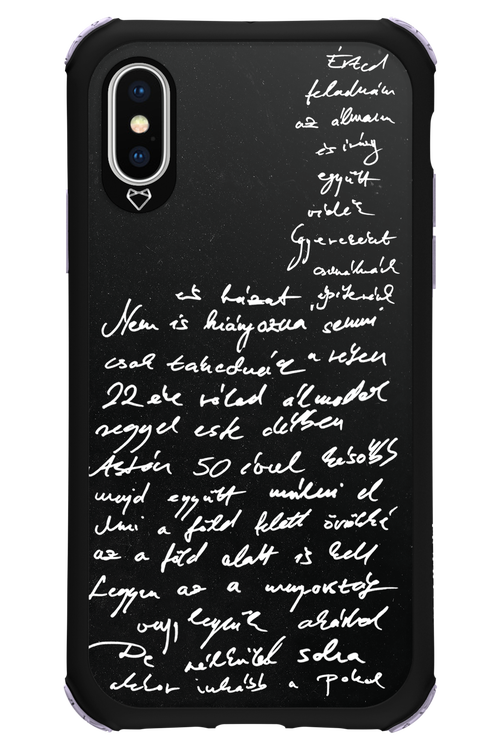 Érted
feladnám
az álmom
és irány
együtt
vidék
Gyereket
csinálnék
és házat építenék
Nem is hiányozna semmi
csak takednék a réten
22 éve rólad álmodok
reggel este délben
Aztán 50 évvel később
majd együtt múlni el
Ami a föld felett örökké
az a föld alatt is kell
Legyen az a mennyország
vagy legyünk akárhol
De nélküled soha
akkor inkább a pokol